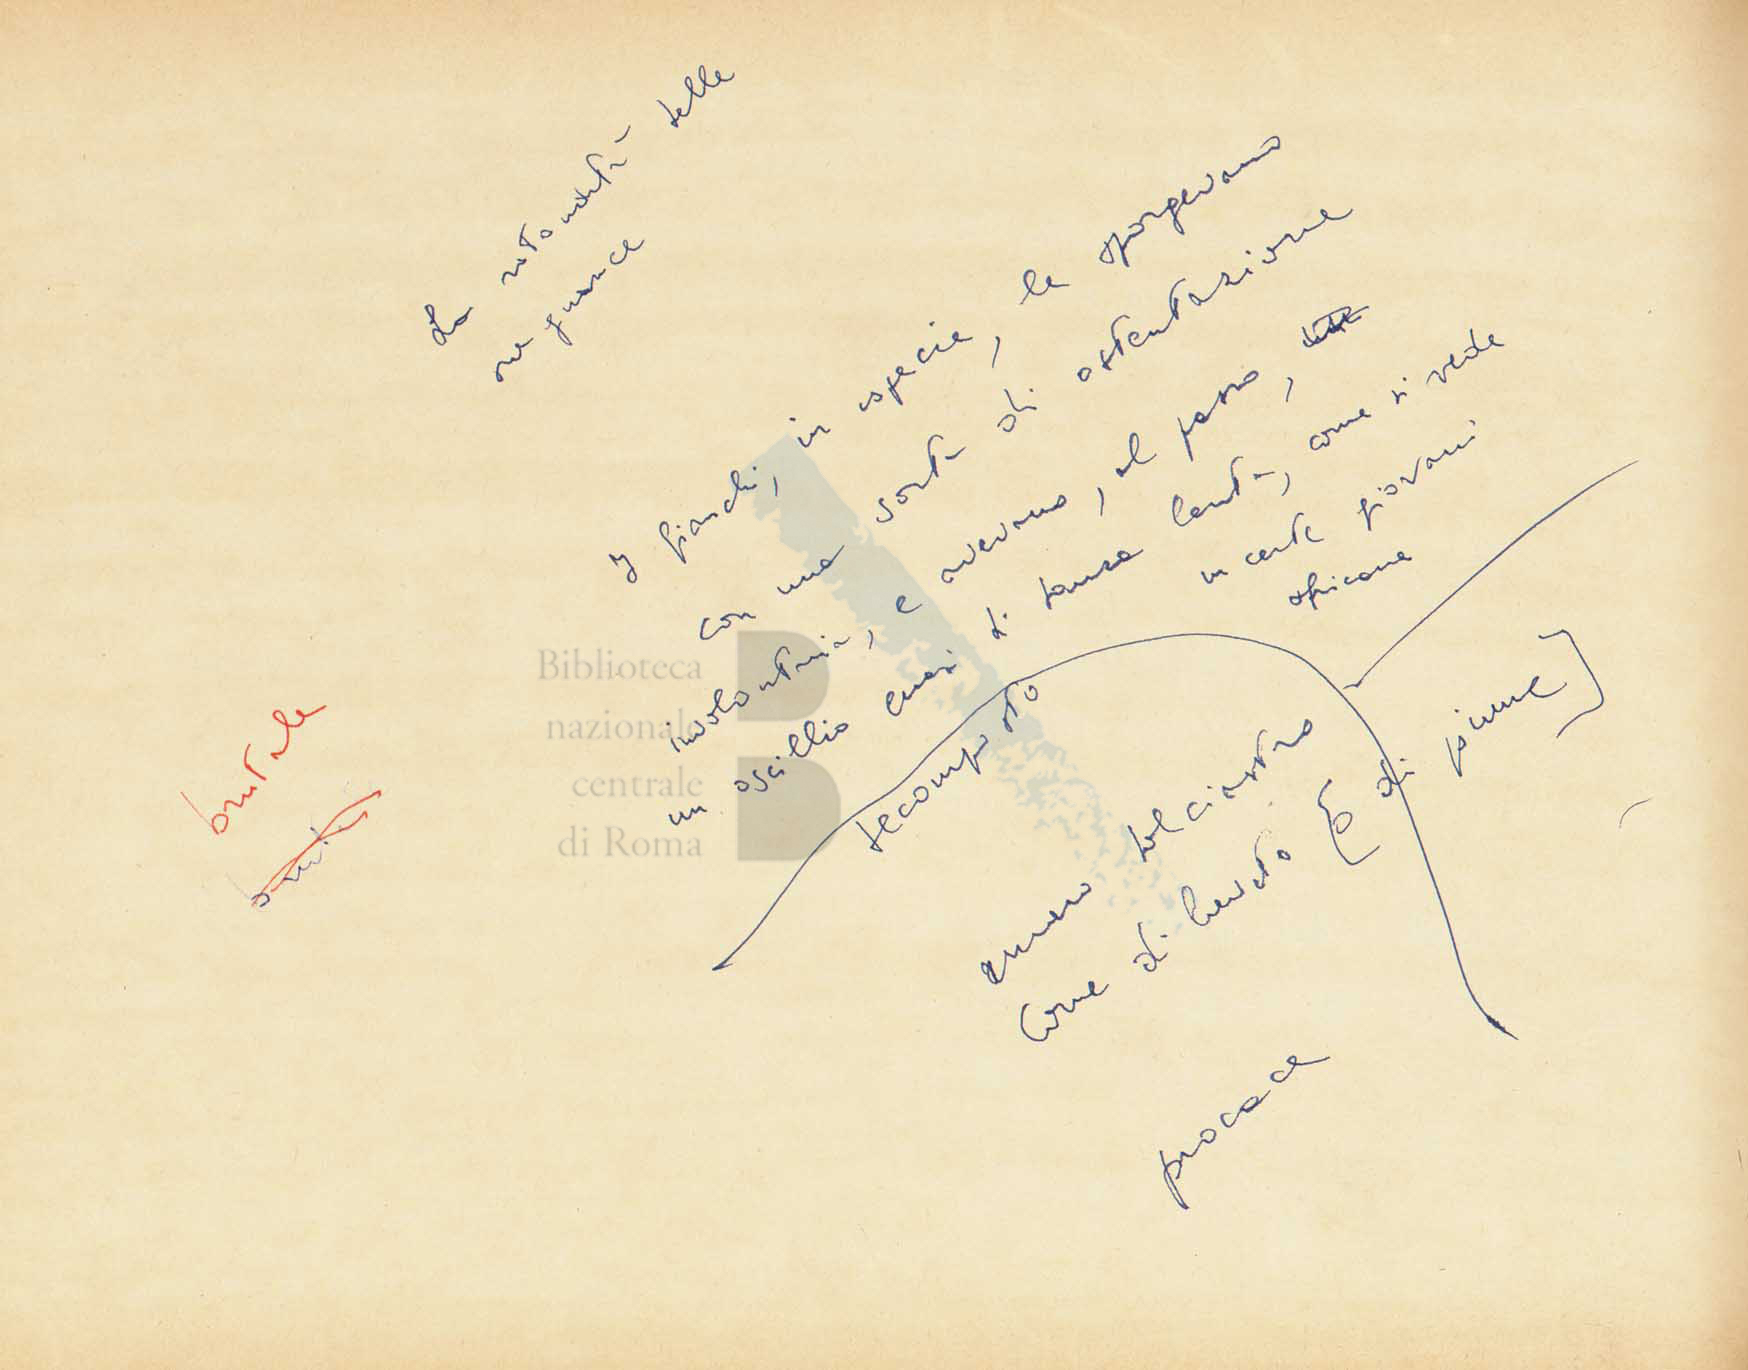 La rotondità delle
sue guance
I fianchi, in specie, le sporgevano
con una sorta di ostentazione
involontaria, e avevano, al passo,
un oscillio quasi di danza lenta, come si vede
in certe giovani
africane
decomposto
dolciastro
come di lievito [o di piume]
procace
brutale
Biblioteca
nazionale
centrale
di Roma